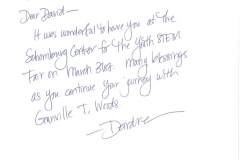 Dear David—
It was wonderful to have you at the
Schomburg Center for the Youth STEM
Fair on March 31st. Many blessings
as you continue your journey with
Granville T. Woods
—Deirdre